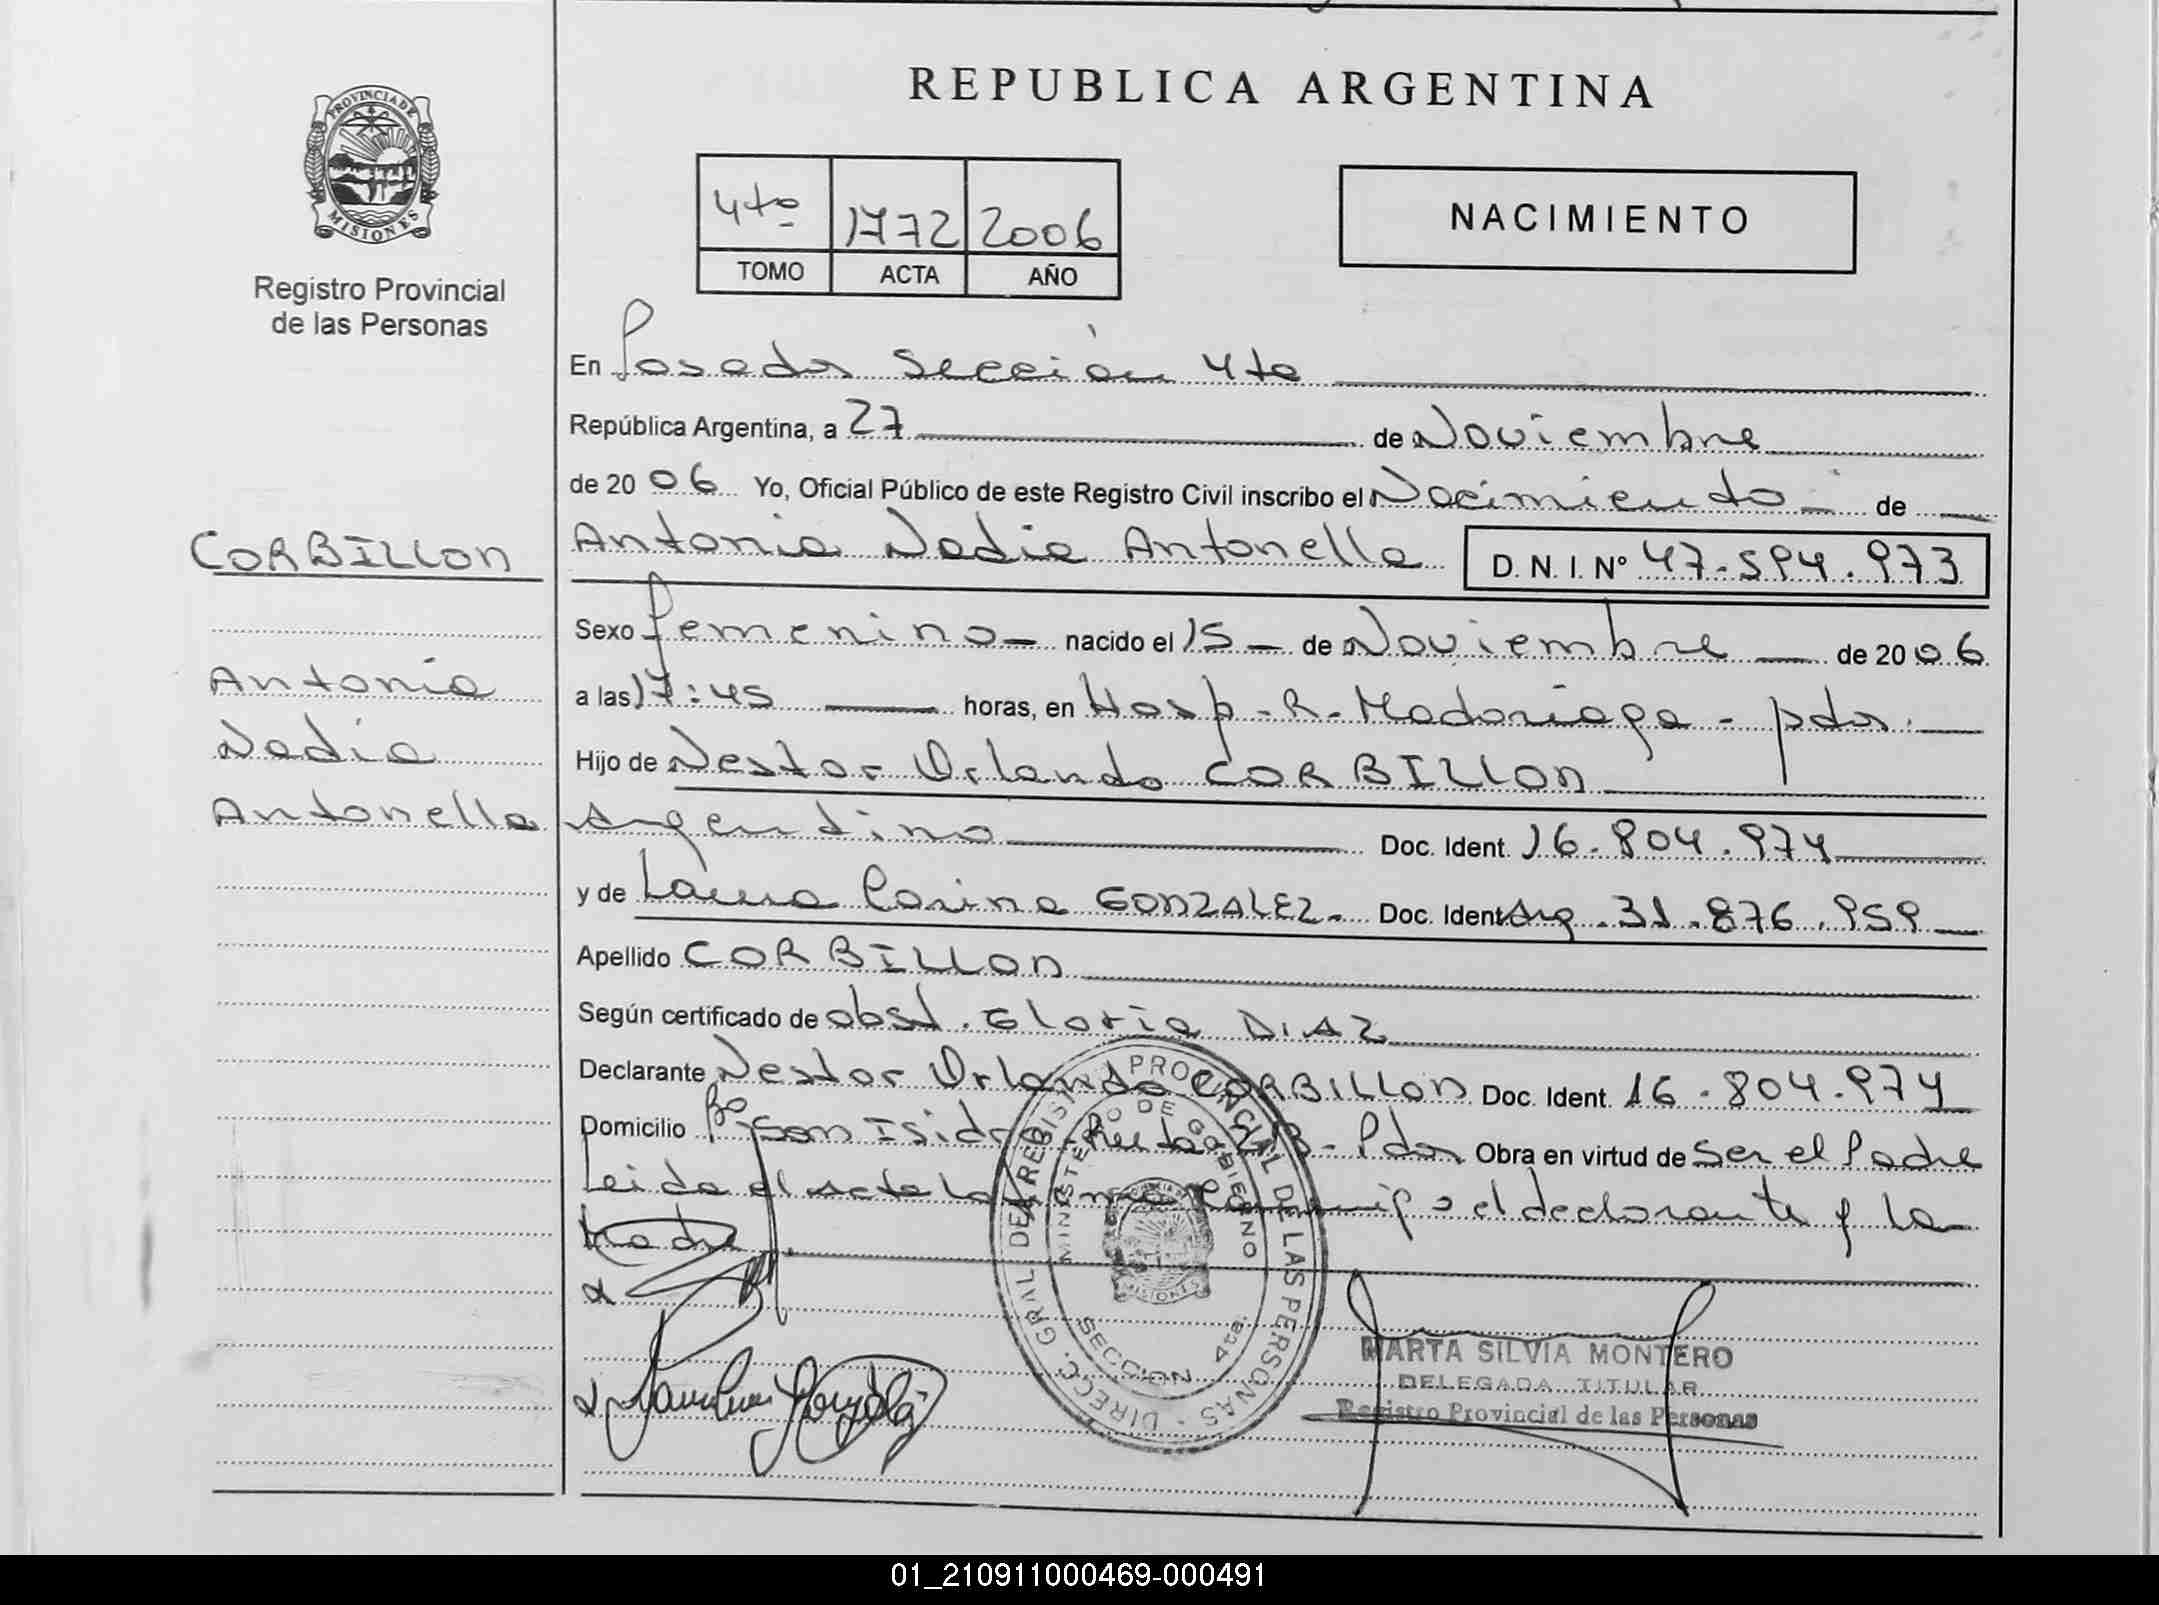 REPUBLICA ARGENTINA
PROVINCIA DE MISIONES
Registro Provincial
de las Personas
4to 1772 2006
TOMO ACTA AÑO
NACIMIENTO
En Posadas sección 4ta
República Argentina, a 27 de Noviembre
de 2006 Yo, Oficial Público de este Registro Civil inscribo el Nacimiento de
CORBILLON
Antonia
Nadia
Antonella
Antonia Nadia Antonella D.N.I. Nº 47.594.973
Sexo femenino nacido el 15 de Noviembre de 2006
a las 17:45 horas, en Hosp. R. Madariaga - pdas.
Hijo de Nestor Orlando CORBILLON
Argentino Doc. Ident. 16.804.974
y de Laura Carina GONZALEZ. Doc. Ident. Arg. 31.876.959
Apellido CORBILLON
Según certificado de obst. Gloria DIAZ
Declarante Nestor Orlando CORBILLON Doc. Ident. 16.804.974
Domicilio Bº San Isidro - Ruta 213 - Pdas Obra en virtud de ser el Padre
Leida el acta la conmigo el declarante y la
Madre.
DIRECC. GRAL. DEL REGISTRO PROVINCIAL DE LAS PERSONAS
MINISTERIO DE GOBIERNO
SECCION 4ta.
MARTA SILVIA MONTERO
DELEGADA TITULAR
Registro Provincial de las Personas
01_210911000469-000491